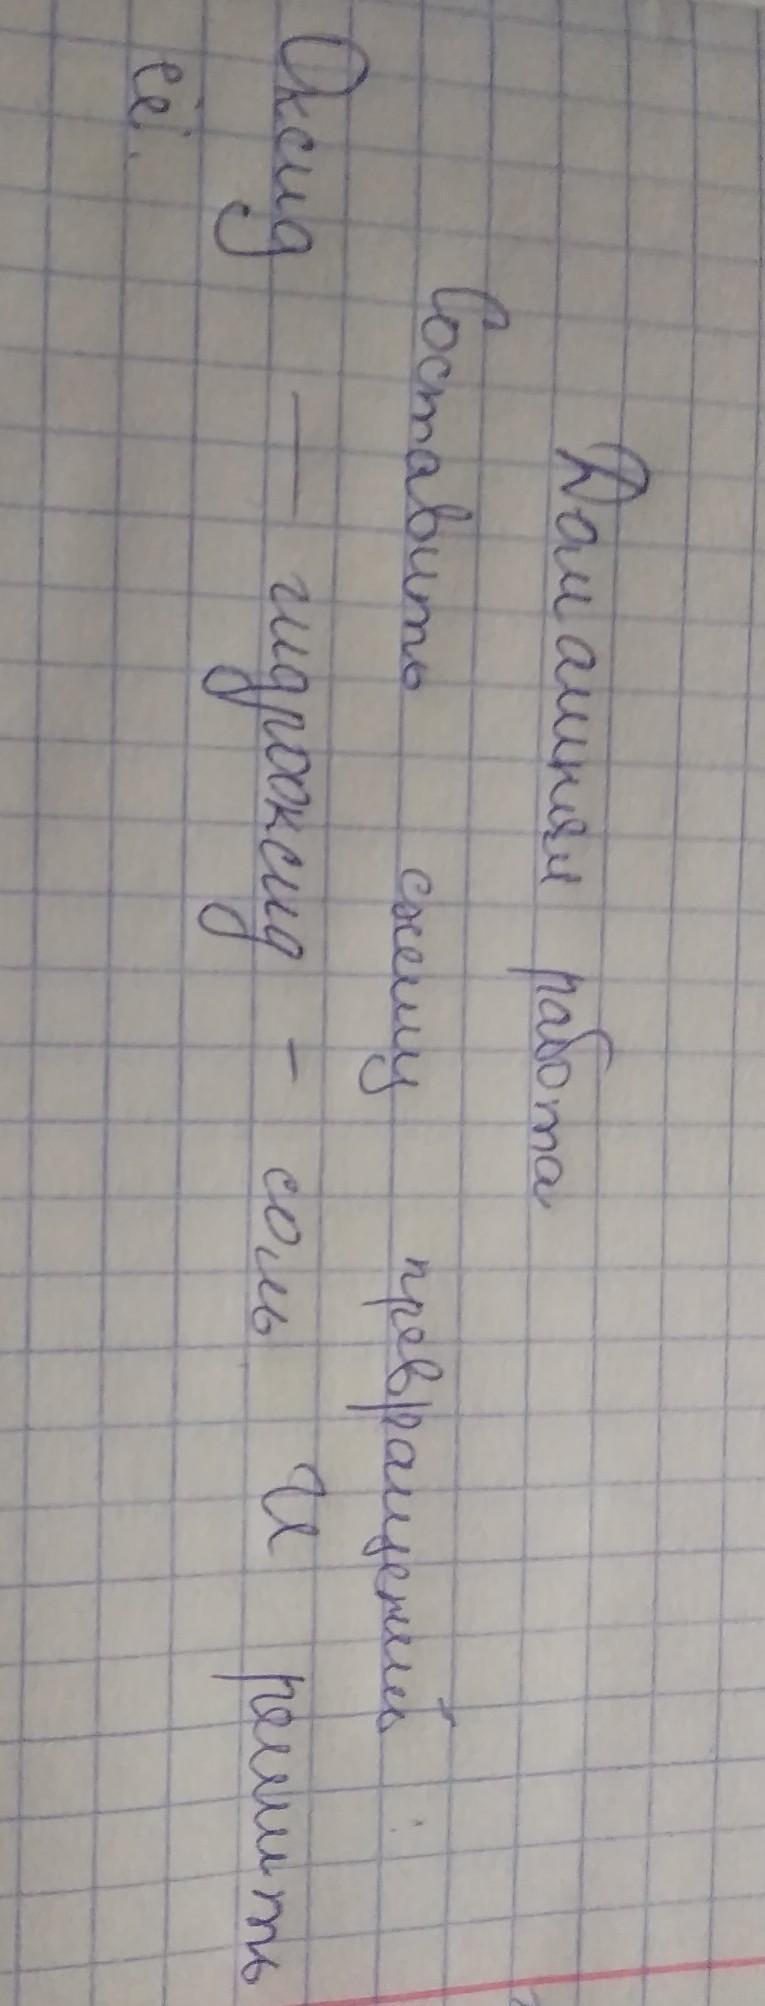 Домашняя работа
Составить схему превращений
Оксид — гидрооксид - соль И решить
её.